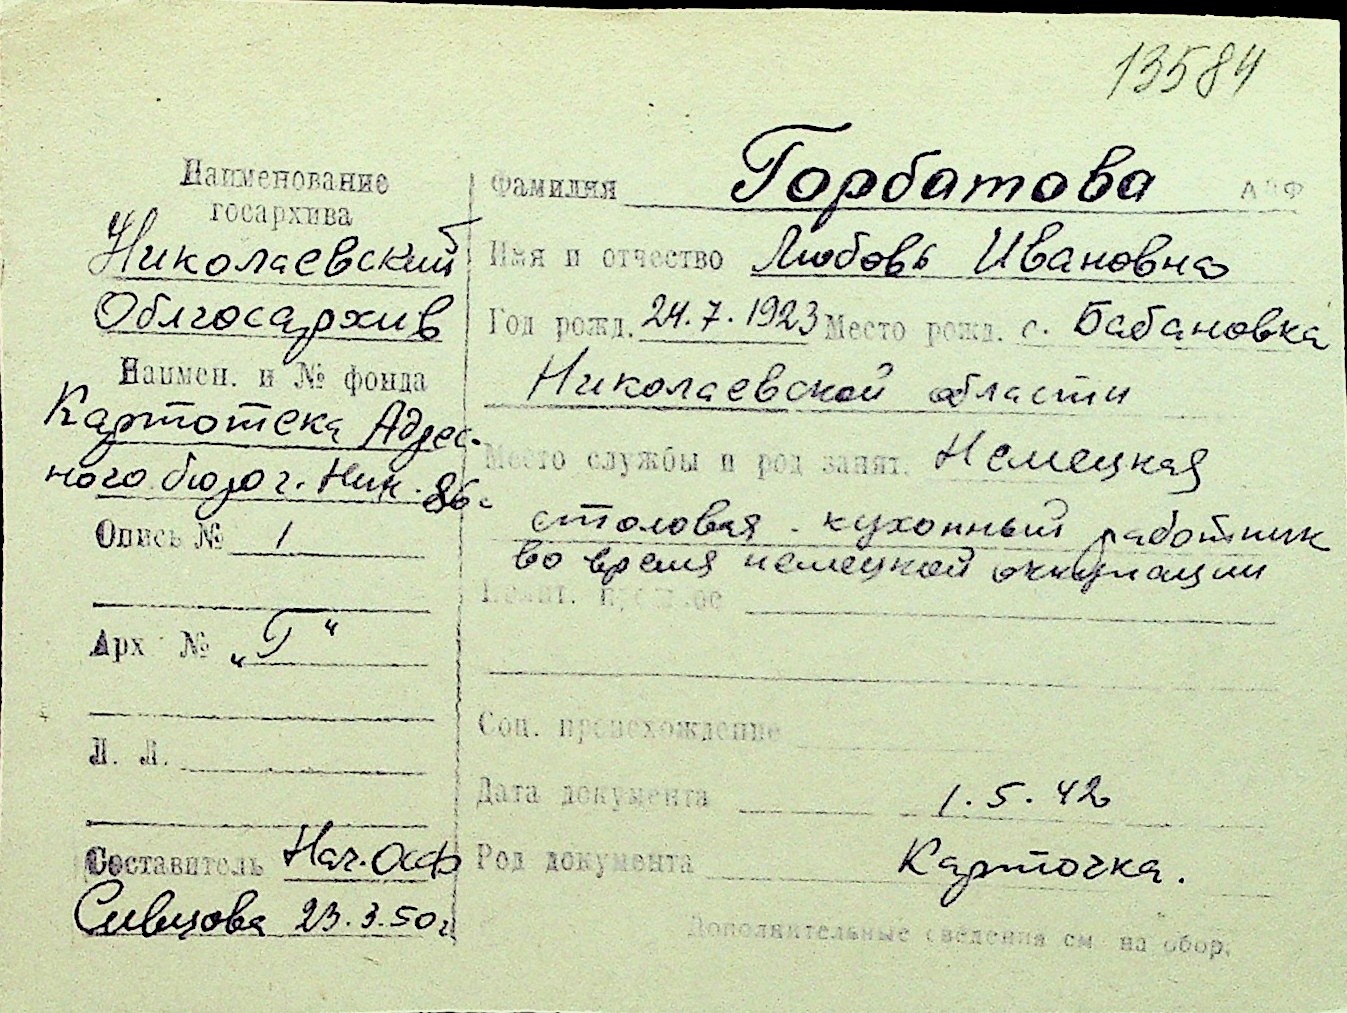 13584
Наименование
госархива
Николаевский
Облгосархив
Наимен. и № фонда
Картотека Адрес-
ного бюро г. Ник.
Опись № 1
Арх №  „Г“
Л. Л.
Составитель Нач. ОАФ
Сивцова 23.3.50 г.
Фамилия Горбатова
Имя и отчество Любовь Ивановна
Год рожд. 24.7.1923 Место рожд. с. Бабановка
Николаевской области
Место службы и род занят. Немецкая
столовая - кухонный работник
во время немецкой оккупации
Полит. прошлое
Соц. происхождение
Дата документа 1.5.42
Род документа Карточка.
Дополнительные сведения см на обор.